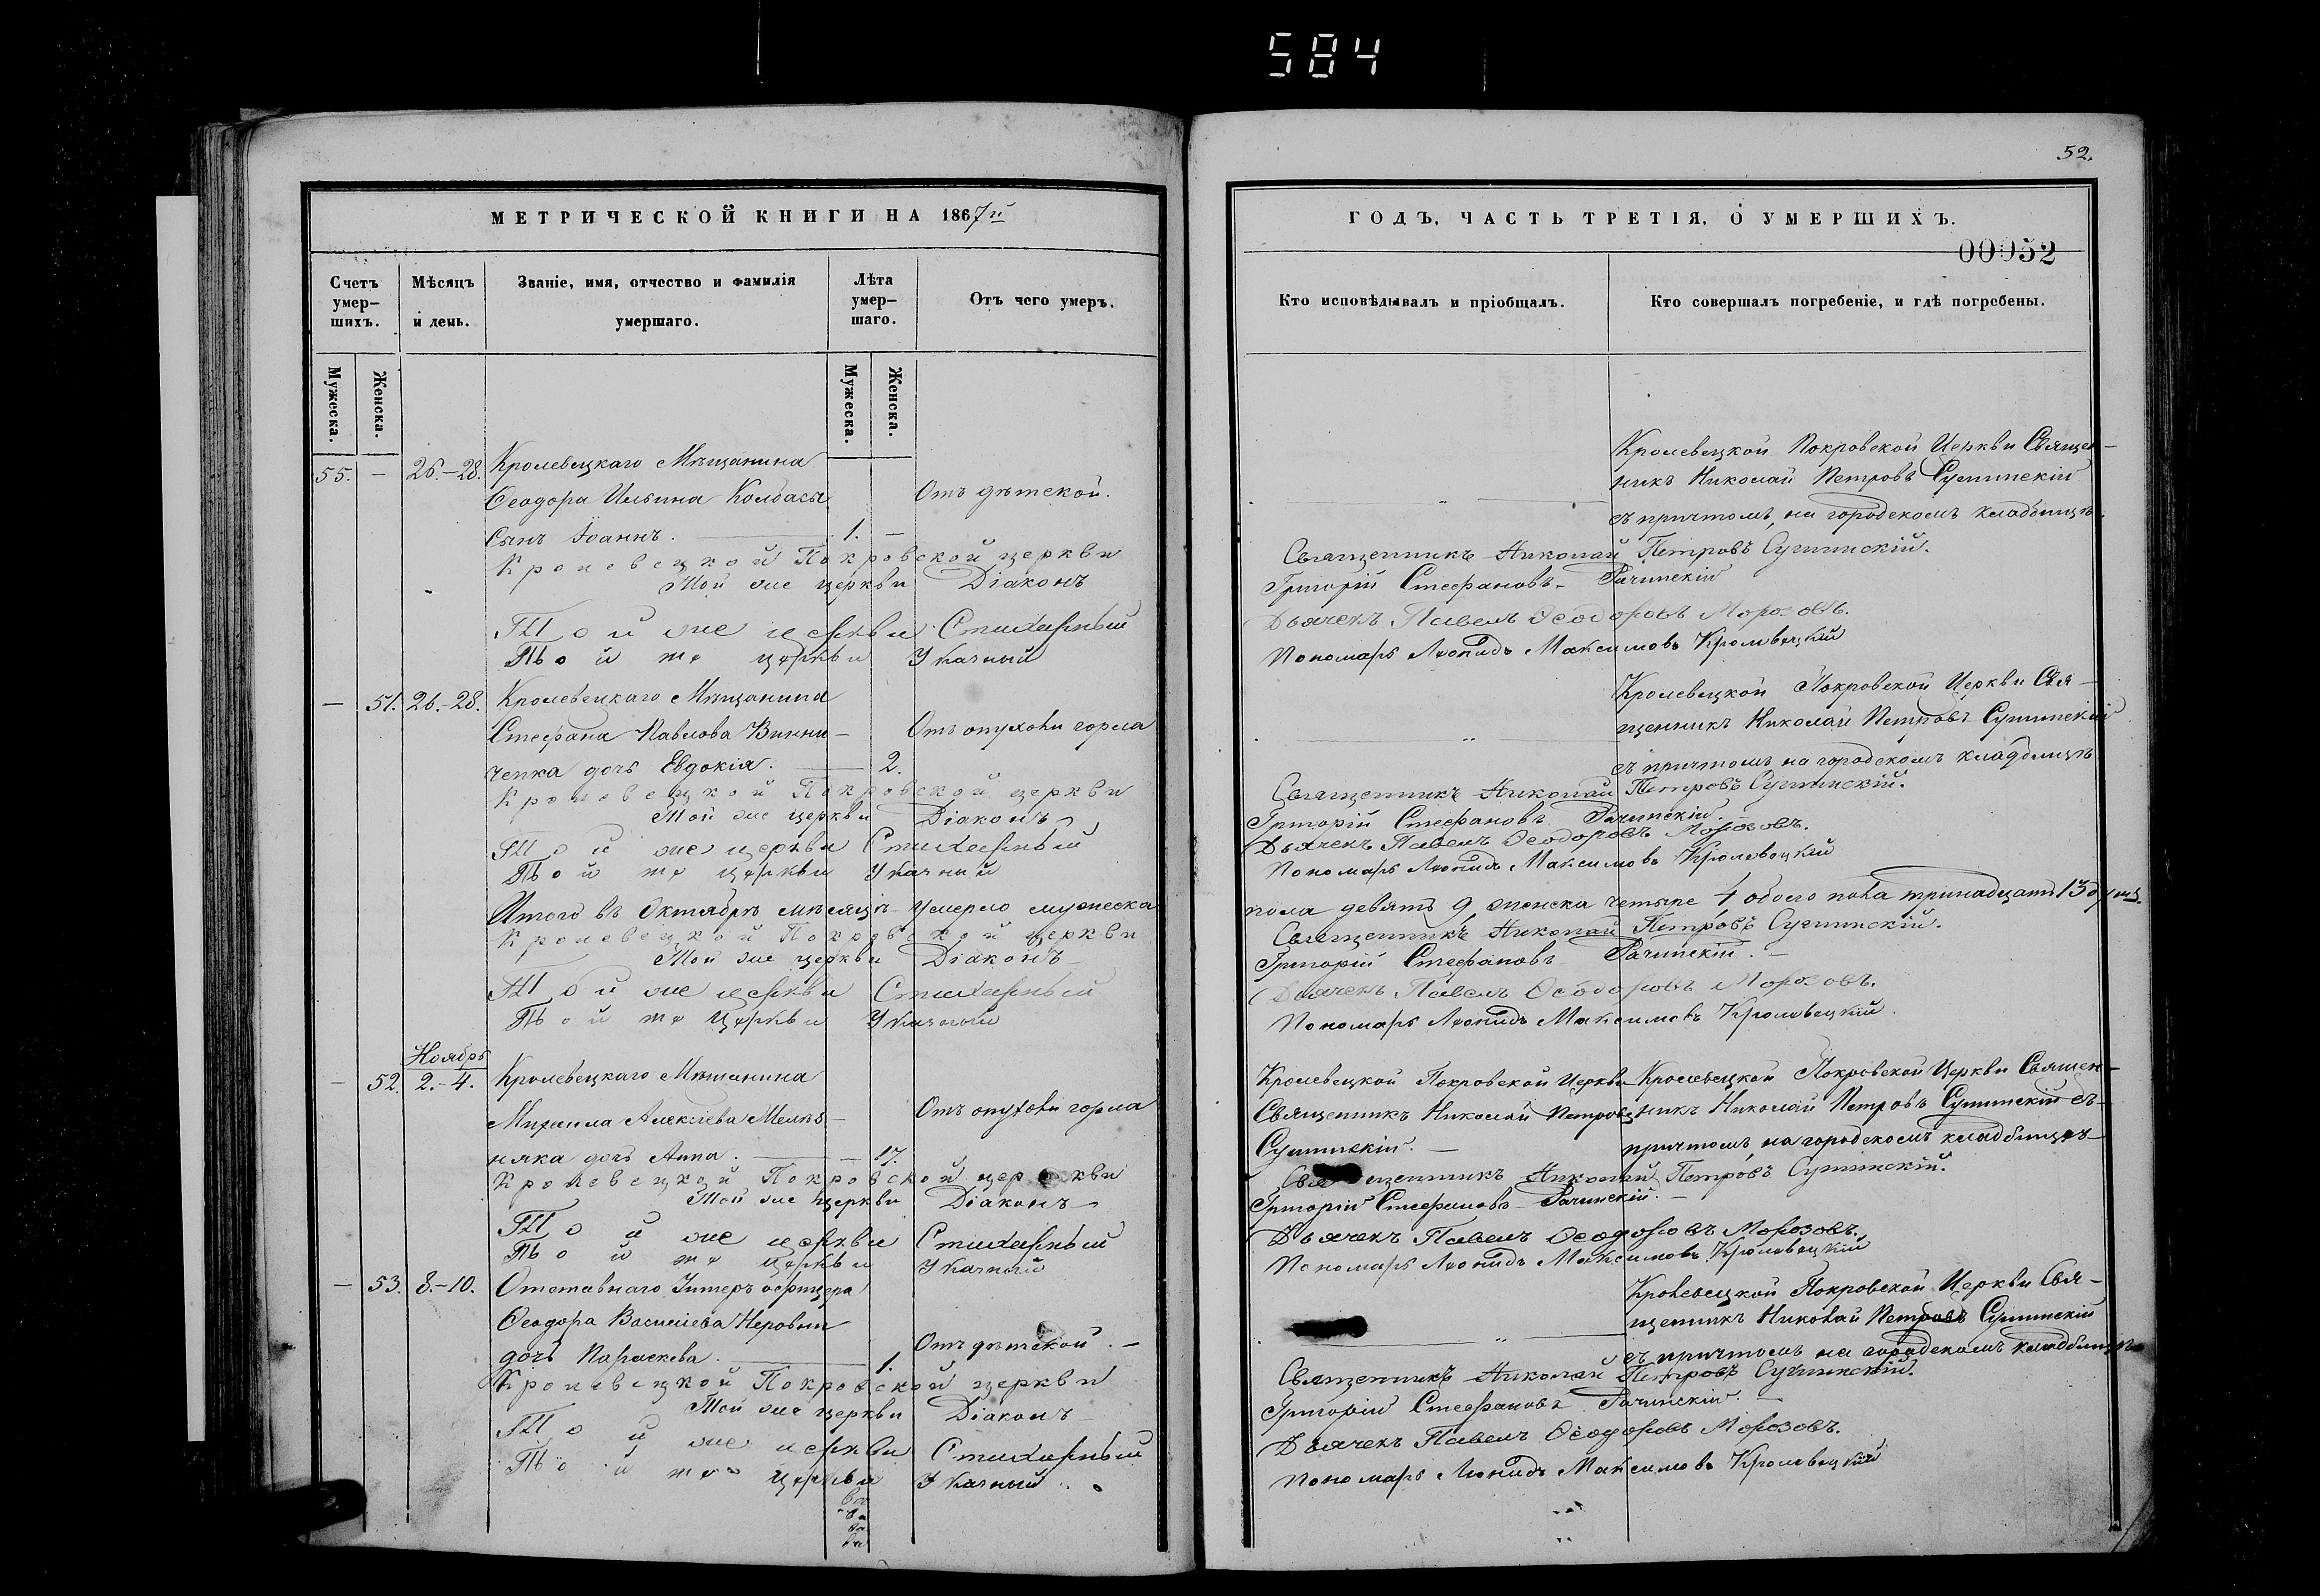 584
52.
МЕТРИЧЕСКОЙ КНИГИ НА 1867й
Счетъ умер–шихъ.
Мѣсяцъ и день.
Званіе, имя, отчество и фамилія умершаго.
Лѣта умер–шаго.
Отъ чего умеръ.
Мужеска.
Женска.
Мужеска.
Женска.
55. — 26.–28. Кролевецкаго Мѣщанина
Ѳеодора Ильина Колбасы Отъ дѣтской.
Сынъ Іоаннъ. 1. —
Кролевецкой Покровской церкви
Той же церкви Діаконъ
Той же церкви Стихарный
Той же церкви Указный
— 51. 26.–28. Кролевецкаго Мѣщанина
Стефана Павлова Винни– Отъ опухоли горла
ченка дочь Евдокія. 2.
Кролевецкой Покровской церкви
Той же церкви Діаконъ
Той же церкви Стихарный
Той же церкви Указный
Итого въ Октябрѣ мѣсяцѣ умерло мужеска
Кролевецкой Покровской церкви
Той же церкви Діаконъ
Той же церкви Стихарный
Той же церкви Указный
Ноябрь
— 52. 2.–4. Кролевецкаго Мѣщанина
Михаила Алексіева Мельь– Отъ опухоли горла
няка дочь Анна. — 17.
Кролевецкой Покровской церкви
Той же церкви Діаконъ
Той же церкви Стихарный
Той же церкви Указный
— 53. 8.–10. Отставнаго Унтеръ офицера
Ѳеодора Василіева
дочь Параскева. 1. Отъ дѣтской. –
Кролевецкой Покровской церкви
Той же церкви Діаконъ
Той же церкви Стихарный
Той же церкви Указный
ГОДЪ, ЧАСТЬ ТРЕТІЯ, О УМЕРШИХЪ.
00052
Кто исповѣдывалъ и пріобщалъ.
Кто совершалъ погребеніе, и гдѣ погребены.
Кролевецкой Покровской Церкви Священ–
никъ Николай Петровъ Сушинскій
съ причтомъ, на городскомъ кладбищѣ.
Священникъ Николай Петровъ Сушинскій.
Григорій Стефановъ Рачинскій
Дьячекъ Павелъ Ѳеодоровъ Морозовъ.
Пономарь Леонидъ Максимовъ Кролевецкій
Кролевецкой Покровской Церкви Свя–
щенникъ Николай Петровъ Сушинскій
съ причтомъ на городскомъ кладбищѣ
Священникъ Николай Петровъ Сушинскій.
Григорій Стефановъ Рачинскій.
Дьячекъ Павелъ Ѳеодоровъ Морозовъ.
Пономарь Леонидъ Максимовъ Кролевецкій
пола девять 9 женска четыре 4 обоего пола тринадцать 13 душъ.
Священникъ Николай Петровъ Сушинскій.
Григорій Стефановъ Рачинскій. –
Дьячекъ Павелъ Ѳеодоровъ Морозовъ.
Пономарь Леонидъ Максимовъ Кролевецкій
Кролевецкой Покровской Церкви Кролевецкой Покровской Церкви Священ–
Священникъ Николай Петровъ никъ Николай Петровъ Сушинскій съ
Сушинскій. – причтомъ, на городскомъ кладбищѣ
Священникъ Николай Петровъ Сушинскій.
Григорій Стефановъ Рачинскій. –
Дьячекъ Павелъ Ѳеодоровъ Морозовъ.
Пономарь Леонидъ Максимовъ Кролевецкій
Кролевецкой Покровской Церкви Свя–
щенникъ Николай Петровъ Сушинскій
съ причтомъ на городскомъ кладбищѣ
Священникъ Николай Петровъ Сушинскій.
Григорій Стефановъ Рачинскій. –
Дьячекъ Павелъ Ѳеодоровъ Морозовъ.
Пономарь Леонидъ Максимовъ Кролевецкій